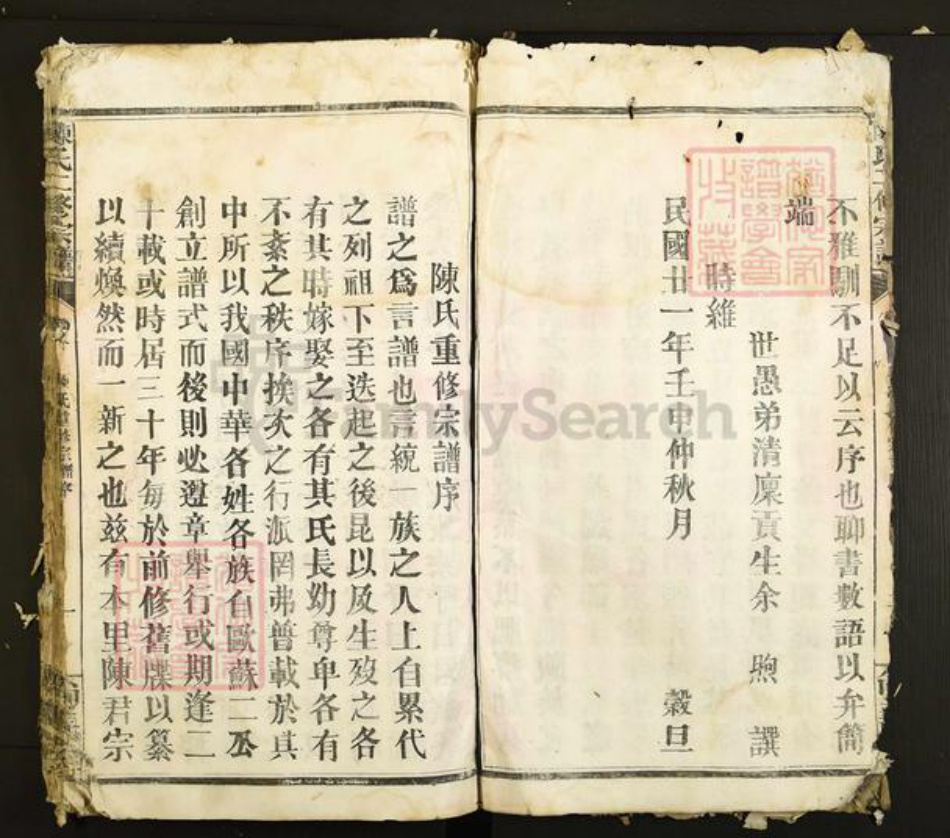 不雅馴不足以云序也聊書數語以弁簡
端
世愚弟清廩貢生余煦譔
時維
民國廿一年壬申仲秋月穀旦
陳氏重修宗譜序
譜之爲言譜也言統一族之人上自累代
之列祖下至迭起之後昆以及生歿之各
有其時嫁娶之各有其氏長幼尊卑各有
不紊之秩序挨次之行派罔弗普載於其
中所以我國中華各姓各族自歐蘇二公
創立譜式而後則必遵章舉行或期逢二
十載或時居三十年每於前修舊牒以纂
以續煥然而一新之也玆有本里陳君宗
陳氏二修宗譜
FamilySearch